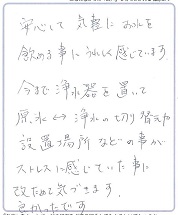 安心して 気軽に お水を
飲める事に うれしく感じています
今まで 浄水器を 置いて
原水 ↔ 浄水の切り替えや
設置場所 などの事が
ストレスに感じていた事に
改ためて気づきます
良かったです